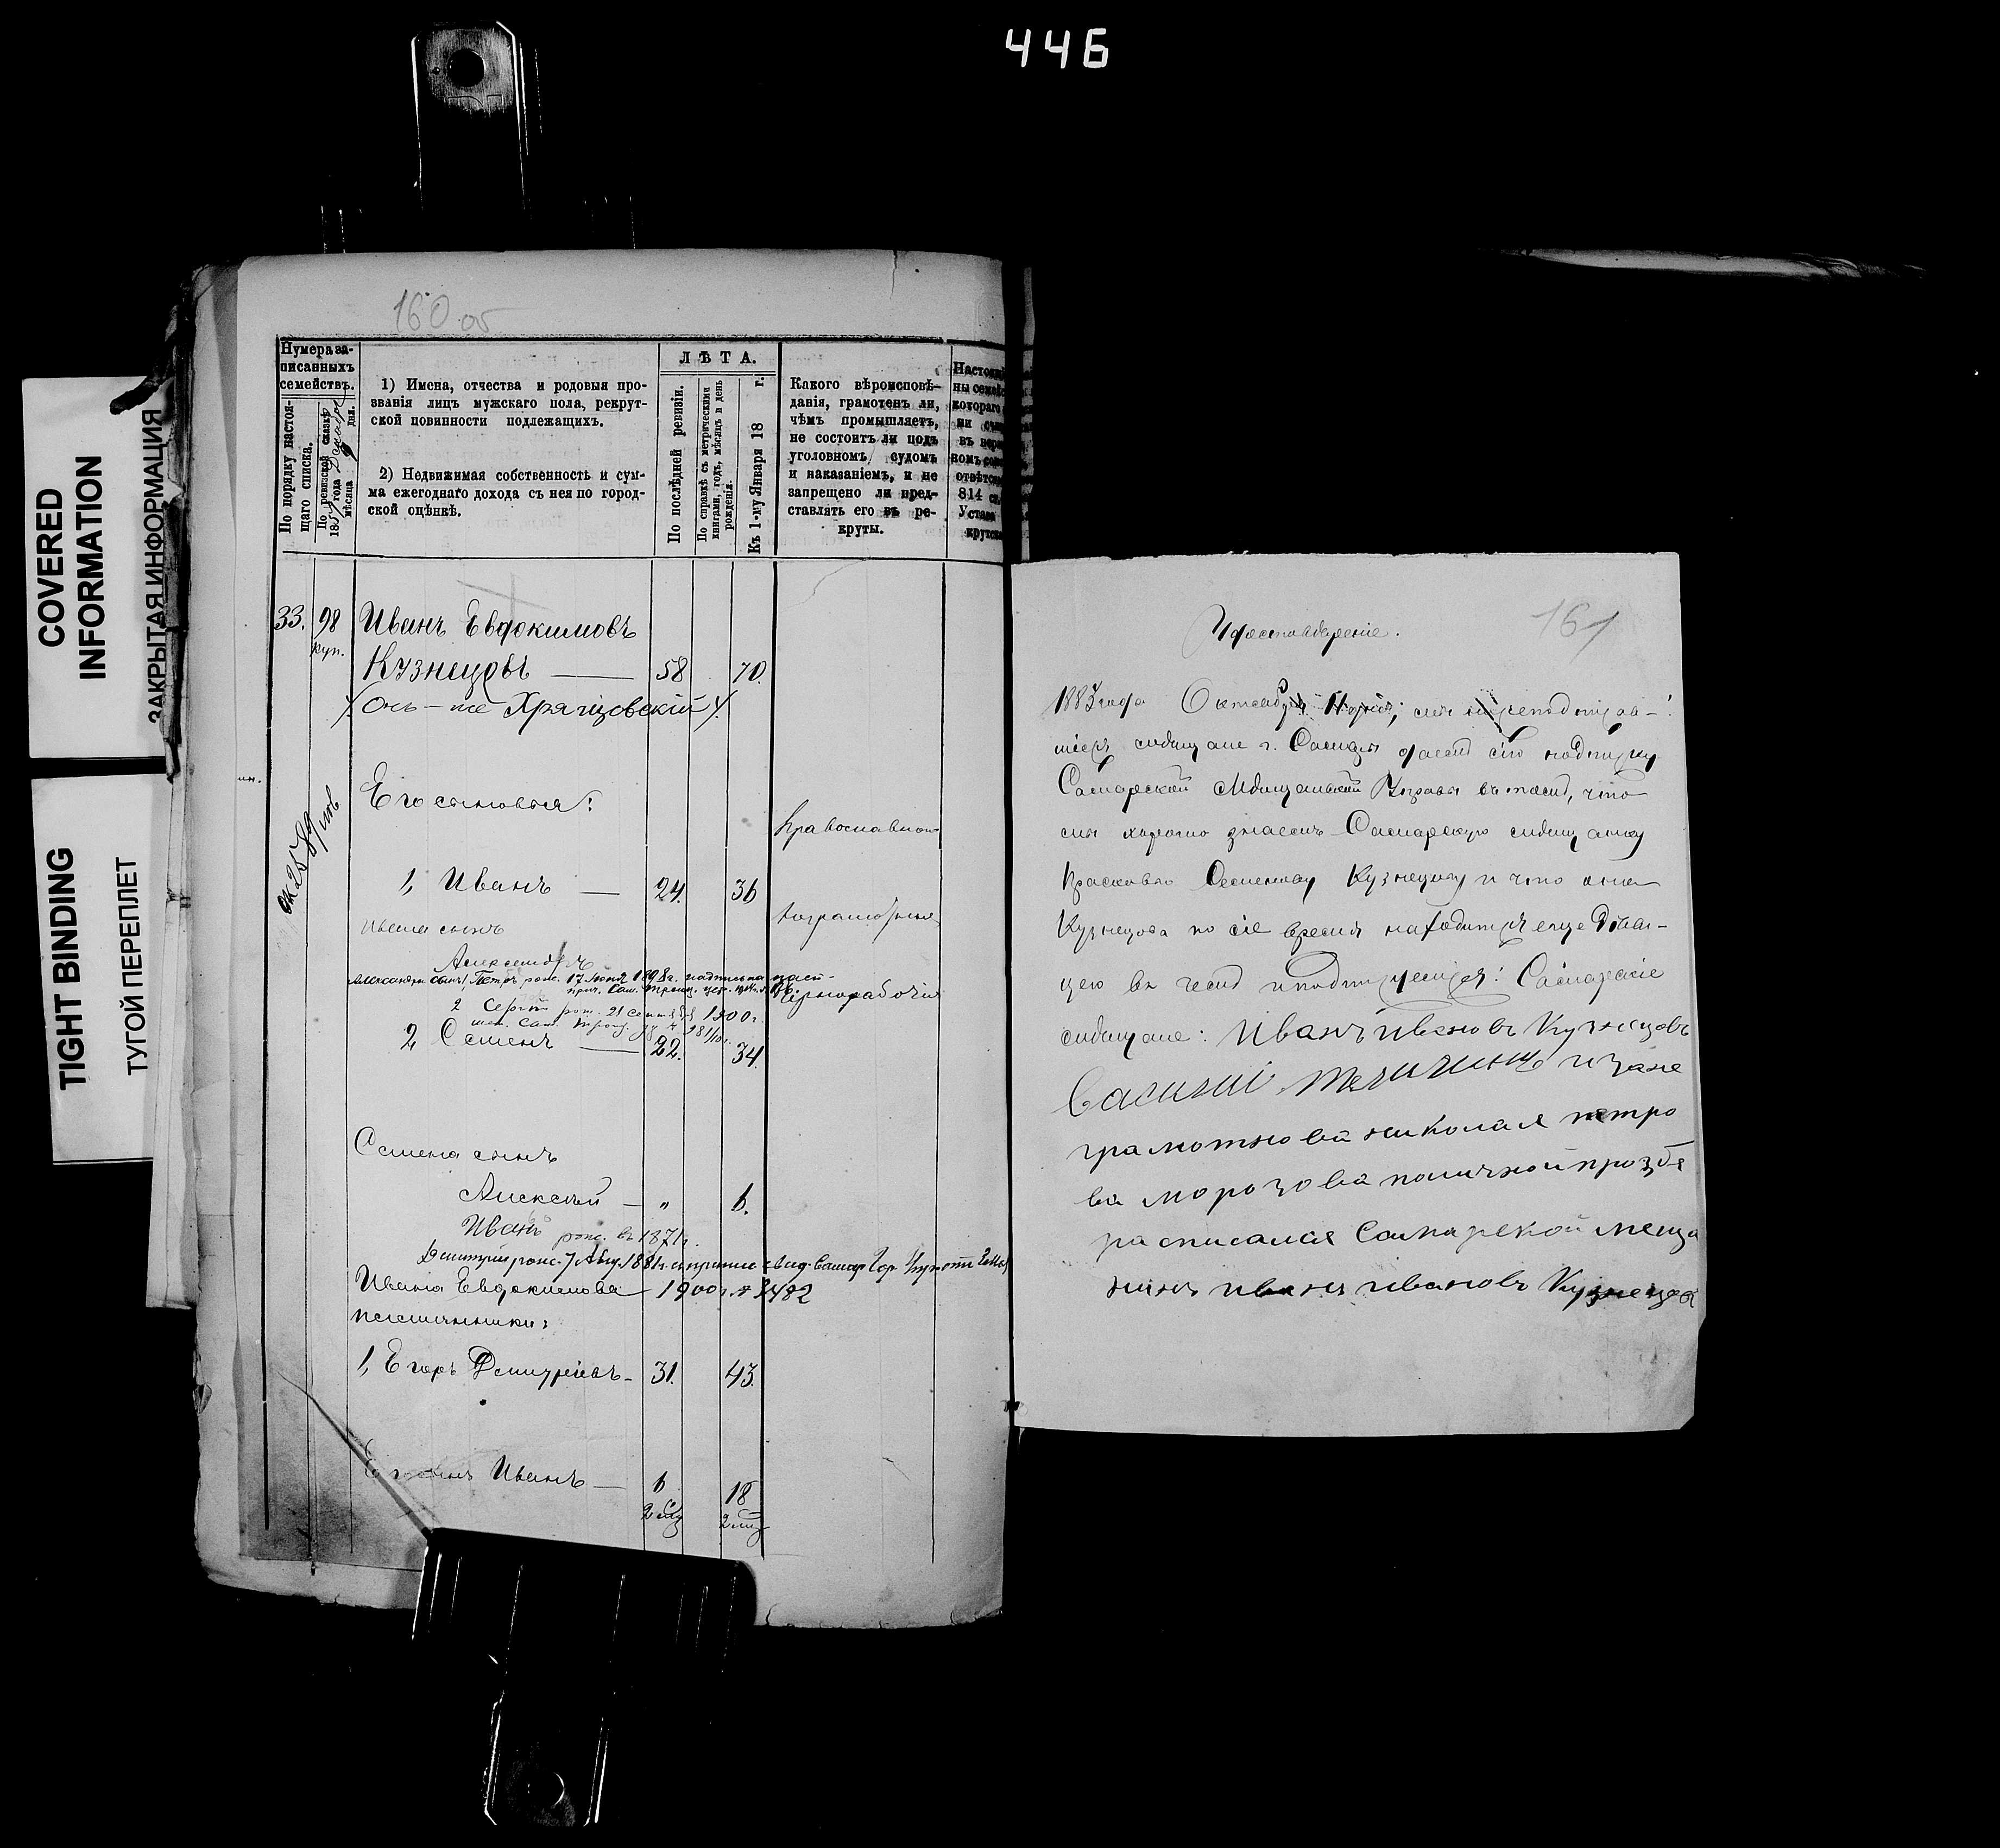 446
COVERED
INFORMATION
ЗАКРЫТАЯ ИНФОРМАЦИЯ
TIGHT BINDING
ТУГОЙ ПЕРЕПЛЕТ
160 об
Нумера за-
писанныхъ
семействъ.
По порядку настоя-
щаго списка.
По ревизской сказкѣ
185 года
мѣсяца дня.
1) Имена, отчества и родовыя про-
званія лицъ мужскаго пола, рекрут-
ской повинности подлежащихъ.
2) Недвижимая собственность и сум-
ма ежегоднаго дохода съ нея по город-
ской оцѣнкѣ.
ЛѢТА.
По послѣдней ревизіи.
По справкѣ съ метрическими
книгами, годъ, мѣсяцъ и день
рожденія.
Къ 1-му Января 18 г.
Какого вѣроисповѣ-
данія, грамотенъ ли,
чѣмъ промышляетъ,
не состоитъ ли подъ
уголовномъ судомъ
и наказаніемъ, и не
запрещено ли пред-
ставлять его въ ре-
круты.
33. 98 Иванъ Евдокимовъ
куп.
Кузнецовъ 58 70.
(Онъ-же Хрящовскій)
Его сыновья:
Православнаго
1, Иванъ 24. 36
Ивана сынъ
неграмотные
Александръ
Александра сынъ 1 Петръ рож. 17 Іюня 1898 г.
чернорабочіе
2 Сергѣй рож. 21 сентября 1900 г.
2, Семенъ 22. 34.
Семена сынъ
Алексѣй — " 6.
Иванъ рож. въ 1871 г.
Дмитрій рож. 7 Авг. 1881 г.
Ивана Евдокимова 1900 г. № 3482
племянники:
1, Егоръ Дмитріевъ 31. 43.
Его сынъ Иванъ — 6 18
2 мѣ 2 мѣ
161
Удостовѣреніе.
1883 года Октября дня, мы нижеподписав-
шіеся мѣщане г. Самары даемъ сію подписку
Самарской Мѣщанской Управѣ въ томъ, что
мы хорошо знаемъ Самарскую мѣщанку
Прасковью Семенову Кузнецову и что она
Кузнецова по сіе время находится еще дѣви-
цею въ чемъ и подписуемся: Самарскіе
мѣщане: Иванъ Ивановъ Кузнецовъ
Василій и зане
грамотновай николая петро
ва морозова поличной прозбе
расписался Самарской меща
нинъ иванъ ивановъ Кузнецов